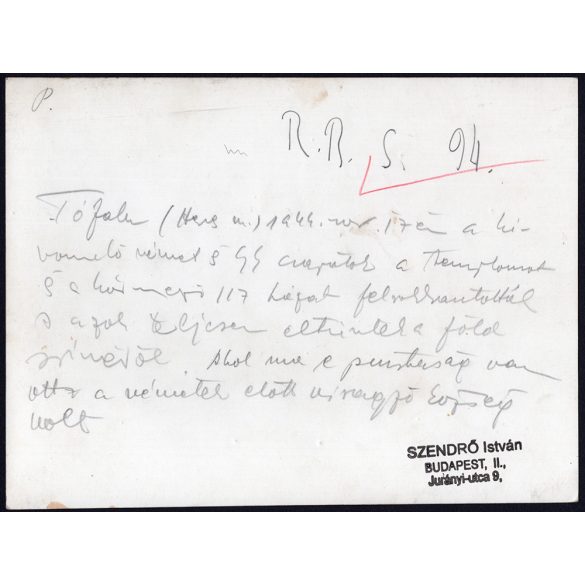 P.
R. B. S. 94.
Tófalu (Heves m.) 1944. nov. 17én a ki-
vonuló német SS csapatok a templomot
s a környező 117 házat felrobbantották
s azok teljesen eltüntek a föld
színéről. Ahol ma e pusztaság van
ott a németek előtt virágzó község
volt
SZENDRŐ István
BUDAPEST, II.,
Jurányi-utca 9,